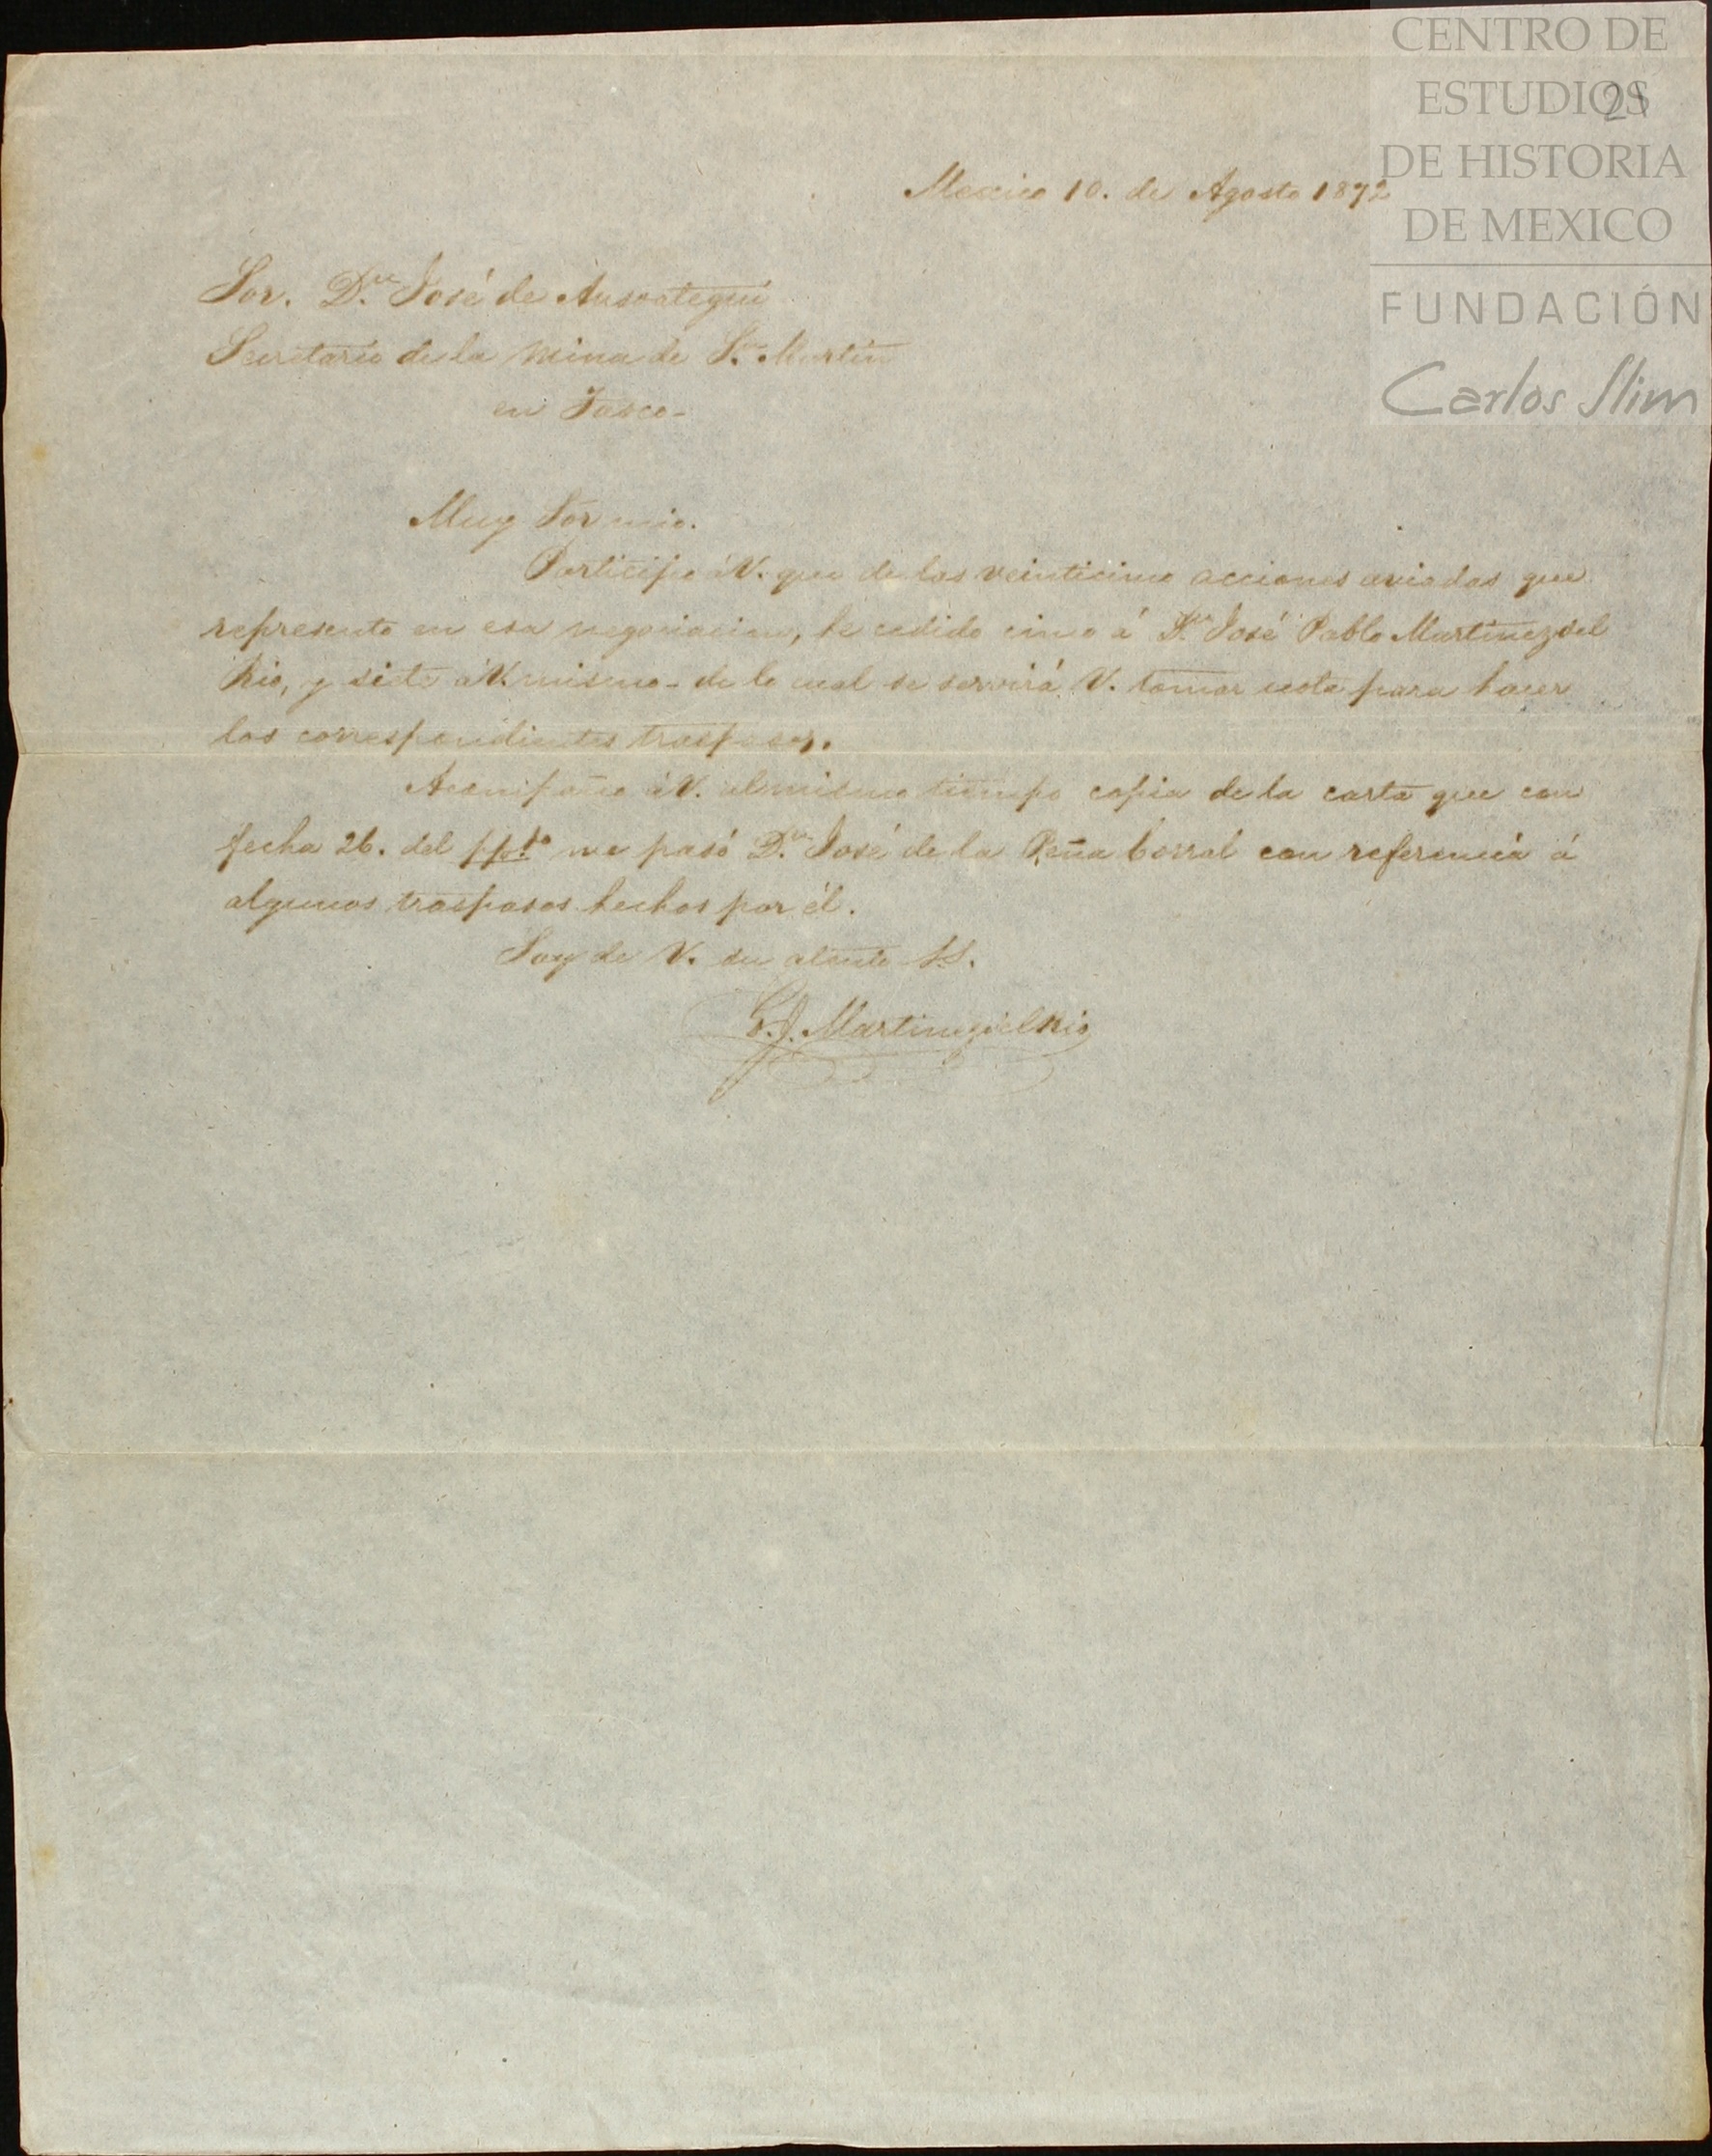 CENTRO DE
ESTUDIOS
DE HISTORIA
DE MEXICO
FUNDACIÓN
Carlos Slim
21
Mexico 10. de Agosto 1872
Sor. Dn. José de Ansoategui
Secretario de la Mina de Sn. Martin
en Tasco-
Muy Sor mio.
Participo á V. que de las veinticinco acciones aviadas que
represento en esa negociacion, he cedido cinco á Dn. José Pablo Martinez del
Rio, y siete á V. mismo - de lo cual se servirá V. tomar nota para hacer
los correspondientes traspasos.
Acompaño á V. al mismo tiempo copia de la carta que con
fecha 26. del ppdo. me pasó Dn. José de la Peña Corral con referencia á
algunos traspasos hechos por él.
Soy de V. su atento S.S.
G. J. Martinez del Rio